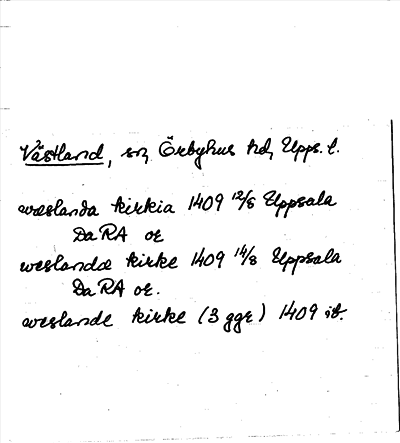 Västland, sn, Örbyhus hd, Upps. l.
weslanda kirkia 1409 12/8 Uppsala
DaRA or
weslandæ kirke 1409 14/8 Uppsala
DaRA or.
weslande kirke (3 ggr) 1409 ib.